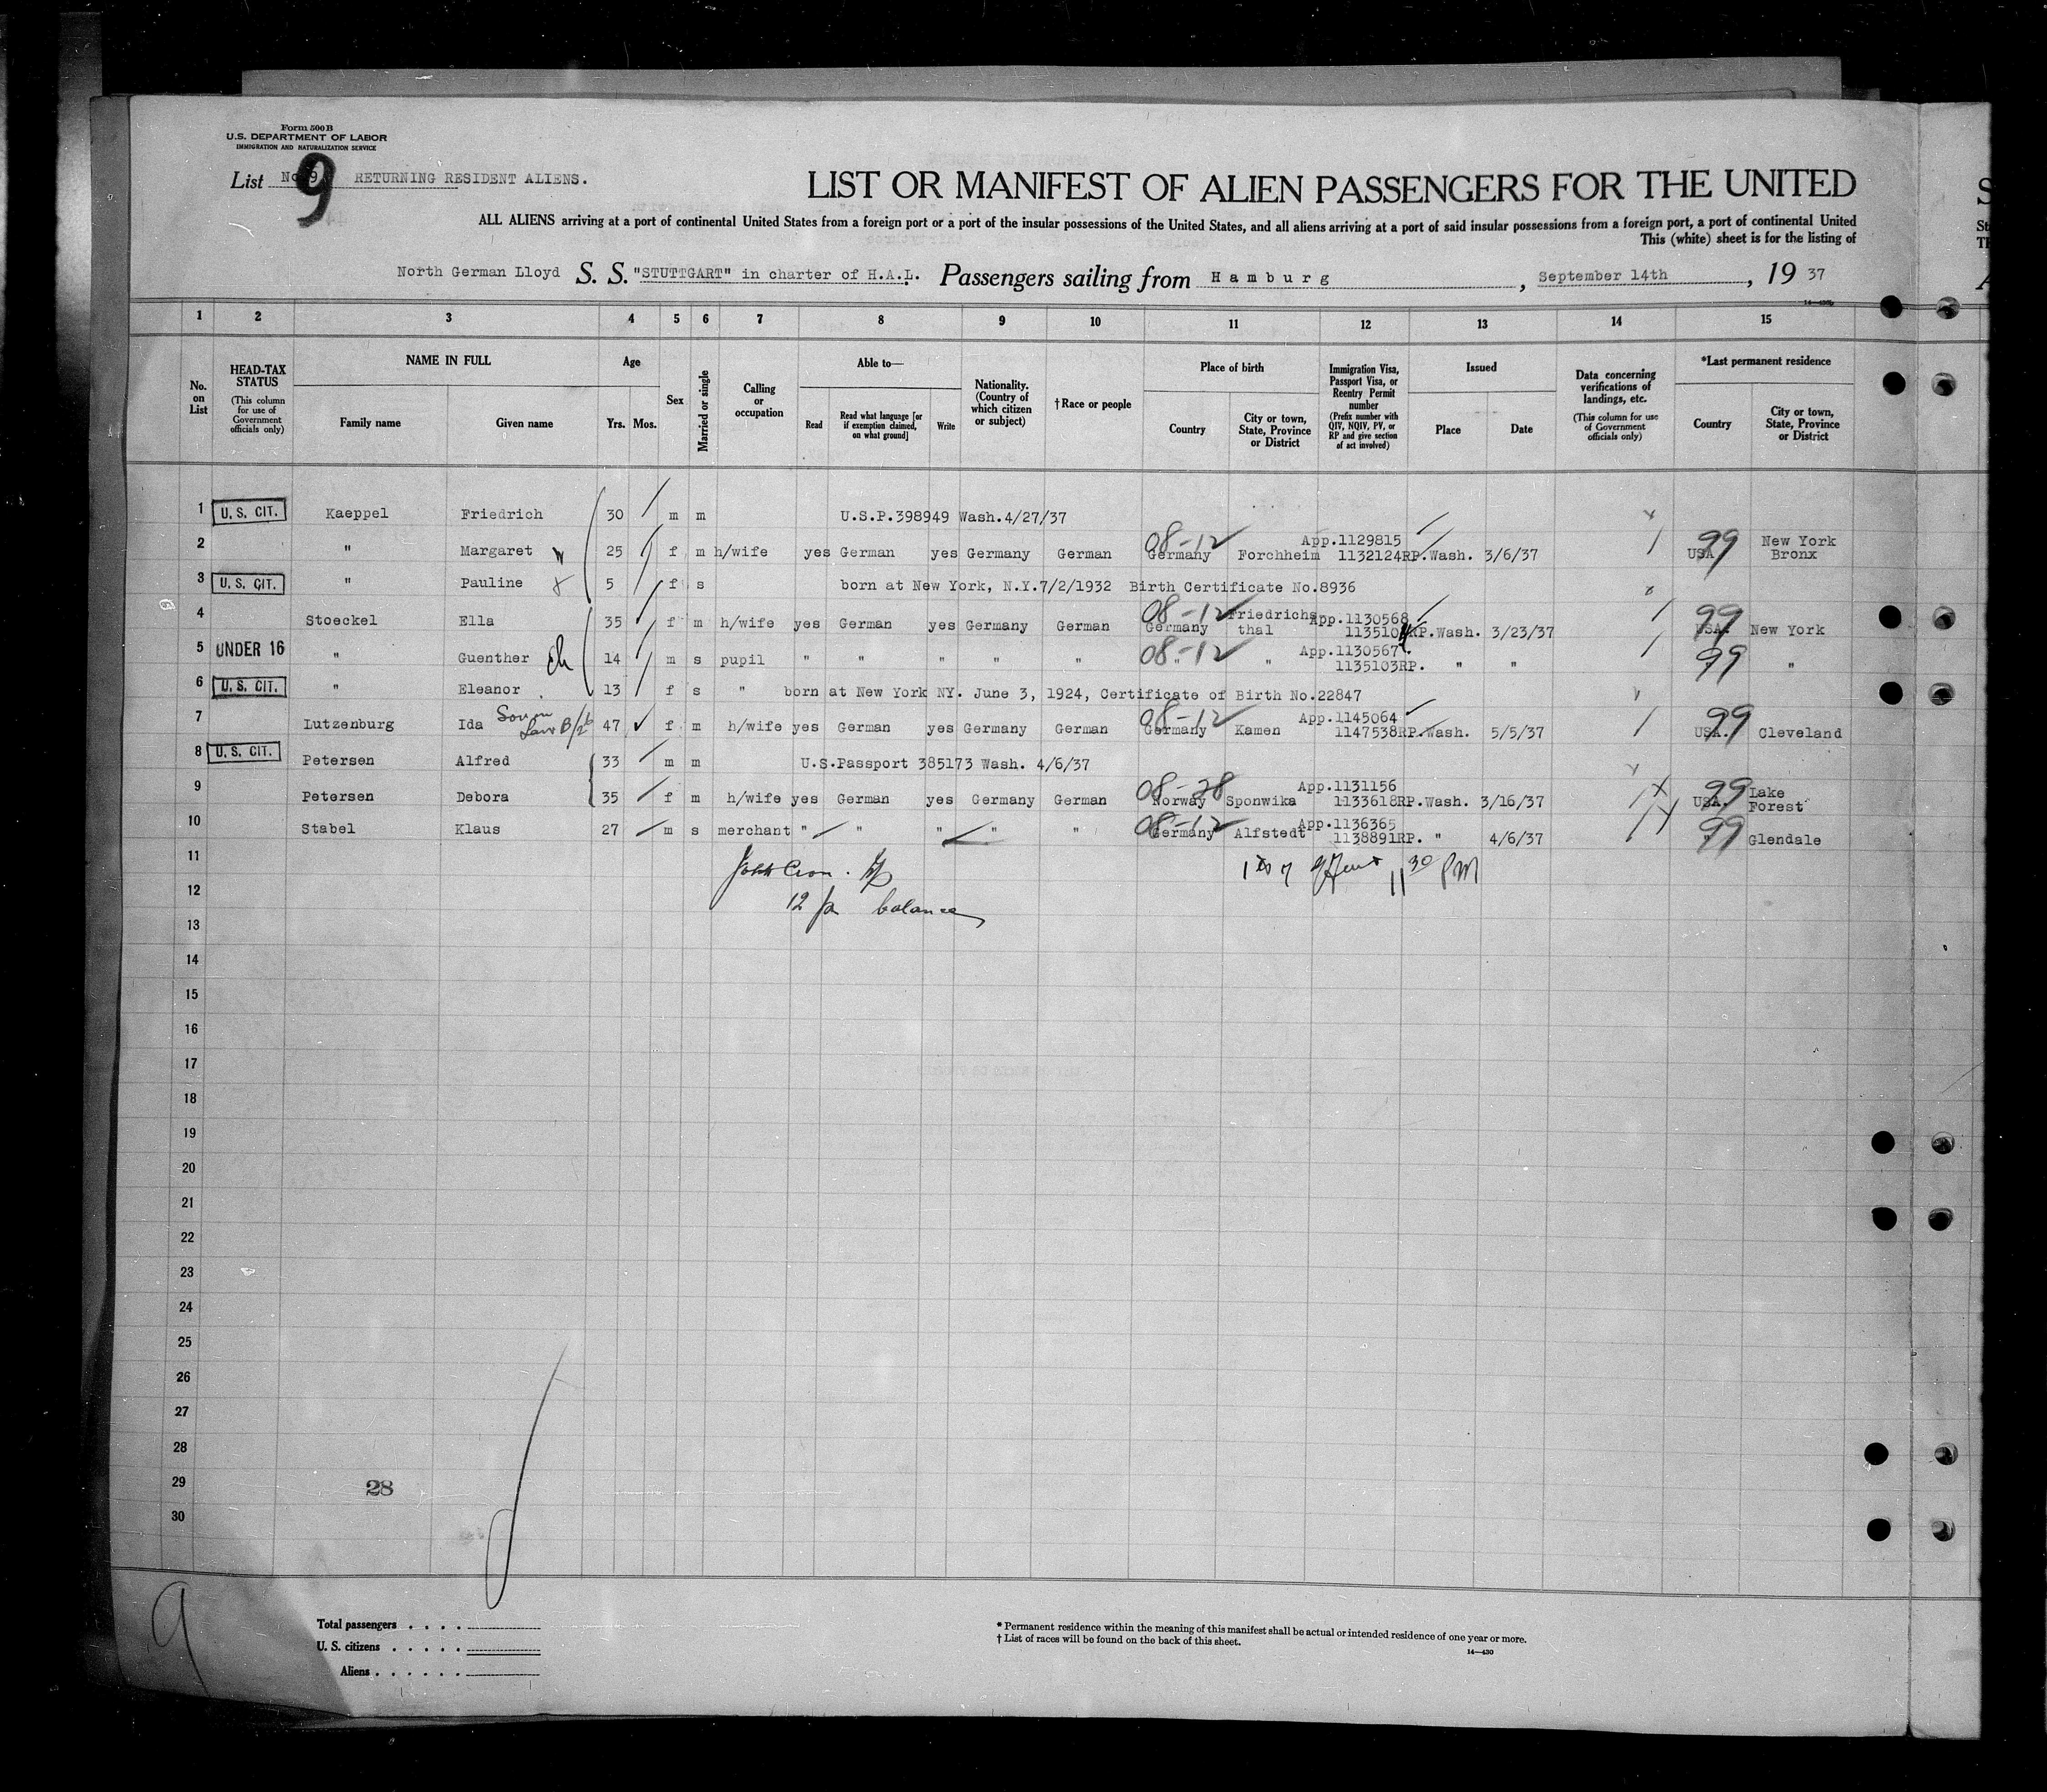 Form 500 B
U. S. DEPARTMENT OF LABOR
IMMIGRATION AND NATURALIZATION SERVICE
List No. 9 RETURNING RESIDENT ALIENS.
9
LIST OR MANIFEST OF ALIEN PASSENGERS FOR THE UNITED
ALL ALIENS arriving at a port of continental United States from a foreign port or a port of the insular possessions of the United States, and all aliens arriving at a port of said insular possessions from a foreign port, a port of continental United
This (white) sheet is for the listing of
North German Lloyd S. S. "STUTTGART" in charter of H.A.L. Passengers sailing from Hamburg, September 14th, 19 37
1 2 3 4 5 6 7 8 9 10 11 12 13 14 15
No. on List
HEAD-TAX STATUS (This column for use of Government officials only)
NAME IN FULL
Family name
Given name
Age
Yrs. Mos.
Sex
Married or single
Calling or occupation
Able to—
Read
Read what language [or if exemption claimed, on what ground]
Write
Nationality. (Country of which citizen or subject)
†Race or people
Place of birth
Country
City or town, State, Province or District
Immigration Visa, Passport Visa, or Reentry Permit number (Prefix number with QIV, NQIV, PV, or RP and give section of act involved)
Issued
Place
Date
Data concerning verifications of landings, etc. (This column for use of Government officials only)
*Last permanent residence
Country
City or town, State, Province or District
1 U. S. CIT. Kaeppel Friedrich 30 m m U.S.P.398949 Wash.4/27/37
2 " Margaret 25 f m h/wife yes German yes Germany German 08-12 Germany Forchheim App.1129815 1132124RP.Wash. 3/6/37 99 USA New York Bronx
3 U. S. CIT. " Pauline 5 f s born at New York, N.Y.7/2/1932 Birth Certificate No.8936
4 Stoeckel Ella 35 f m h/wife yes German yes Germany German 08-12 Germany Friedrichsthal App.1130568 113510 RP.Wash. 3/23/37 99 USA. New York
5 UNDER 16 " Guenther 14 m s pupil " " " " " 08-12 " " App.1130567 1135103RP. " " 99 "
6 U. S. CIT. " Eleanor 13 f s " born at New York NY. June 3, 1924, Certificate of Birth No.22847
7 Lutzenburg Ida 47 f m h/wife yes German yes Germany German 08-12 Germany Kamen App.1145064 1147538RP.Wash. 5/5/37 99 USA. Cleveland
8 U. S. CIT. Petersen Alfred 33 m m U.S.Passport 385173 Wash. 4/6/37
9 Petersen Debora 35 f m h/wife yes German yes Germany German 08-28 Norway Sponwika App.1131156 1133618RP.Wash. 3/16/37 99 USA. Lake Forest
10 Stabel Klaus 27 m s merchant " " " " " 08-12 Germany Alfstedt App.1136365 1138891RP. " 4/6/37 99 " Glendale
11
11 30 PM
12
balance
13
14
15
16
17
18
19
20
21
22
23
24
25
26
27
28
29
28
30
9
Total passengers
U. S. citizens
Aliens
* Permanent residence within the meaning of this manifest shall be actual or intended residence of one year or more.
† List of races will be found on the back of this sheet.
14—430